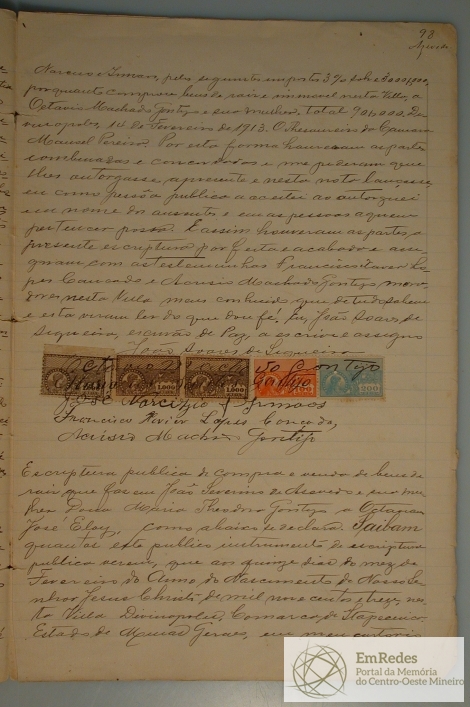 98
Narciso & Irmaos, pelos seguintes impostos 3% sobre
por quanto comprou bens de raiz e immovel nesta Villa, a
Octavio Machado Gontijo e sua mulher. total 90$000. De
vinopolis, 14 de Fevereiro de 1913. O Thesoureiro da Camara
Manoel Pereira. Por esta forma houveram as partes
combinadas e concordadas e me pederam que
lhes autorgasse a presente e nesta nota lançasse,
eu como pessôa publica a acceitei ao autorguei
em nome dos ausentes e umas pessoas a quem
pertencer possa. E assim houveram as partes, a
presente escriptura por feita e acabada e assi
gnam com as testemunhas Francisco Xavier Lo
pes Cançado e Acrisio Machado Gontijo mora
dores nesta Villa meus conhecidos que de tudo sabem
e esta viram ler do que dou fé. Eu, João Soares de
Siqueira, escrivão de Paz, a escrevi e assigno
João Soares de Siqueira
Octavio Machado Gontijo
Gontijo
José Narcizo & Irmaos
Francisco Xavier Lopes Cançado,
Acrisio Machado Gontijo
1.000
1.000
200
Escriptura publica de Compra e venda de bens de
raiz que fazem João Severino de Azevedo e sua mu
lher Dona Maria Theodora Gontijo a Octaviano
José Eloy, como abaixo se declara. Saibam
quantos este publico instrumento de escriptura
publica verem, que aos quinze dias do mez de
Fevereiro do Anno do Nascimento de Nosso Se
nhor Jesus Christo de mil nove centos e treze, nes
ta Villa Divinopolis, Comarca de Itapecerica
Estado de Minas Geraes, em meu cartorio
EmRedes
Portal da Memória
do Centro-Oeste Mineiro